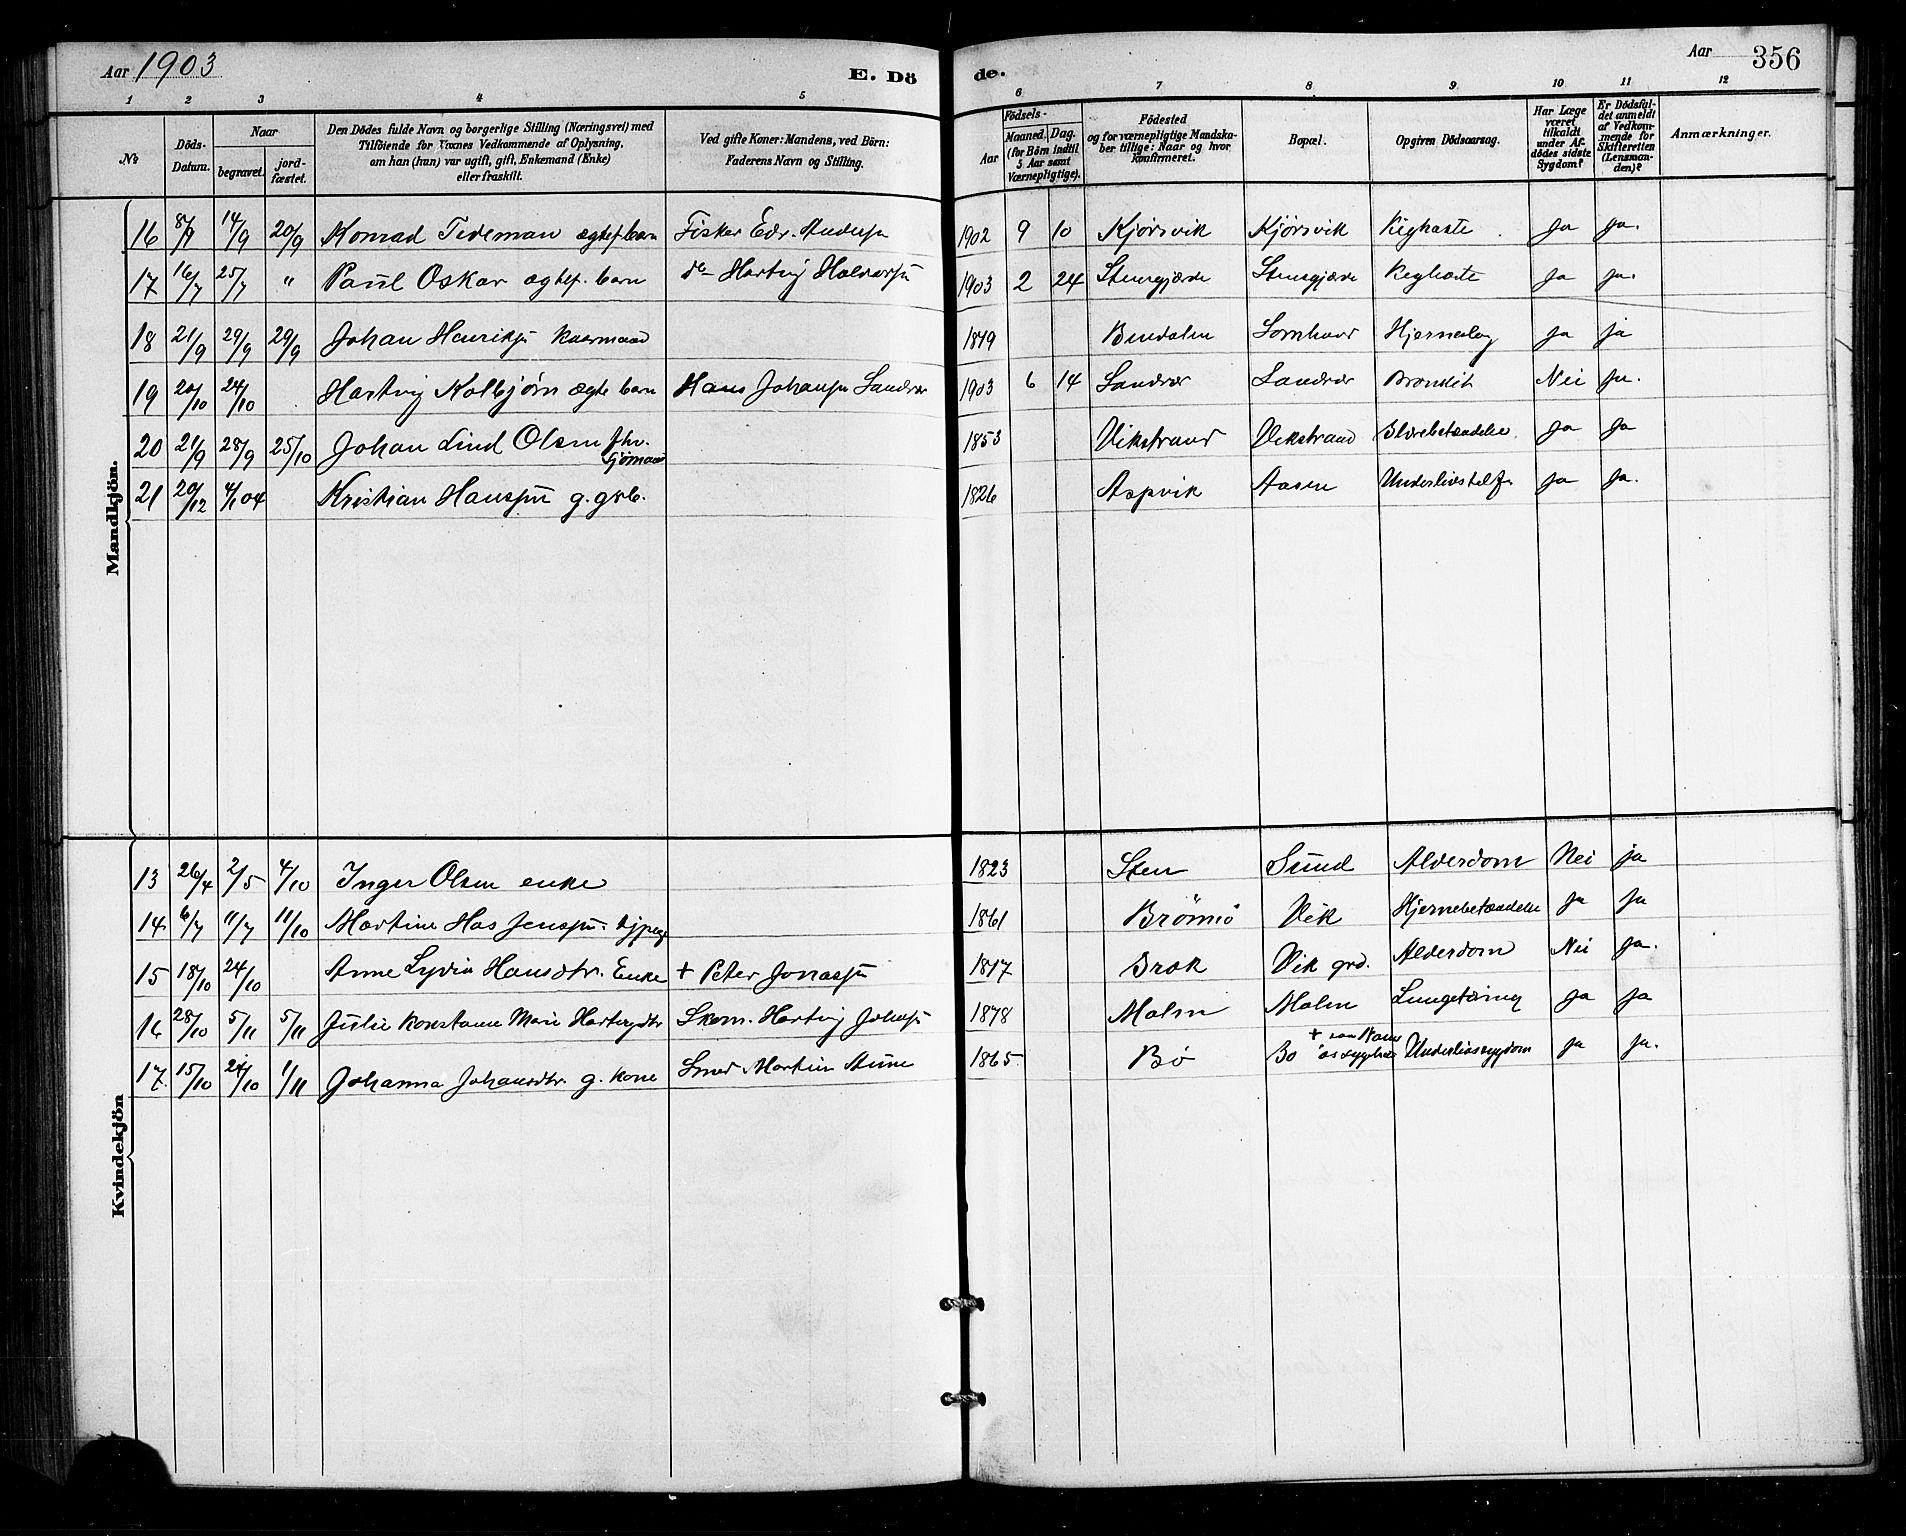 Aar 1903
E. Dö
de.
Aar
356
1 2 3 4 5 6 7 8 9 10 11 12
No
Döds-
Datum.
Naar
begravet.
jord-
fæstet.
Den Dödes fulde Navn og borgerlige Stilling (Næringsvei) med
Tilföiende for Voxnes Vedkommende af Oplysning,
om han (hun) var ugift, gift, Enkemand (Enke)
eller fraskilt.
Ved gifte Koner: Mandens, ved Börn:
Faderens Navn og Stilling.
Födsels-
Aar
Maaned. Dag.
(for Börn indtil
5 Aar samt
Værnepligtige).
Födested
og for værnepligtige Mandska-
ber tillige: Naar og hvor
konfirmeret.
Bopæl.
Opgiven Dödsaarsag.
Har Læge
været
tilkaldt
under Af-
dödes sidste
Sygdom?
Er Dödsfal-
det anmeldt
af Vedkom-
mende for
Skifteretten
(Lensman-
den)?
Anmærkninger.
Mandkjön.
16 8/9 14/9 20/9 Konrad Tideman ægtef. barn Fisker Edv. Anders 1902 9 10 Kjörsvik Kjörsvik Kighoste Ja Ja.
17 16/7 25/7 " Paul Oskar ægtef. barn do Hartvig Halvors 1903 2 24 Stensgjærde Stensgjærde Kighoste Ja Ja.
18 21/9 29/9 29/9 Johan Henriks kaarmand 1849 Bindalen Hjerneslag Ja Ja
19 20/10 24/10 Hartvig Kolbjørn ægte barn Hans Johans Sandvær 1903 6 14 Sandvær Sandvær Bronkit Nei Ja.
20 21/9 28/9 25/10 Johan Lind Olsen fhv.
Sjömand 1853 Vikstrand Vikstrand Blærebetændelse Ja Ja
21 20/12 4/1 04 Kristian Hansen g. grb. 1826 Aspvik Aasen Ja Ja.
Kvindekjön
13 26/4 2/5 4/10 Inger Olsen enke 1823 Sten Sund Alderdom Nei Ja
14 6/7 11/7 11/10 Martine Has Jens 1861 Brönnö Vik Hjernebetændelse Ja Ja
15 18/10 24/10 Anne Lydia Hansdtr. Enke + Peter Jonass 1817 Brok Vik grd. Alderdom Nei Ja.
16 28/10 5/11 5/11 Julie Konstanse Marie Hartvigdtr Skom. Hartvig Johns 1878 Malm Malm Lungetæring Ja Ja
17 15/10 24/10 1/11 Johanna Johansdtr. g. kone Smed Martin Aune 1865 Bö Bö + paa Nams
os sygehus Underlivssygdom Ja Ja.